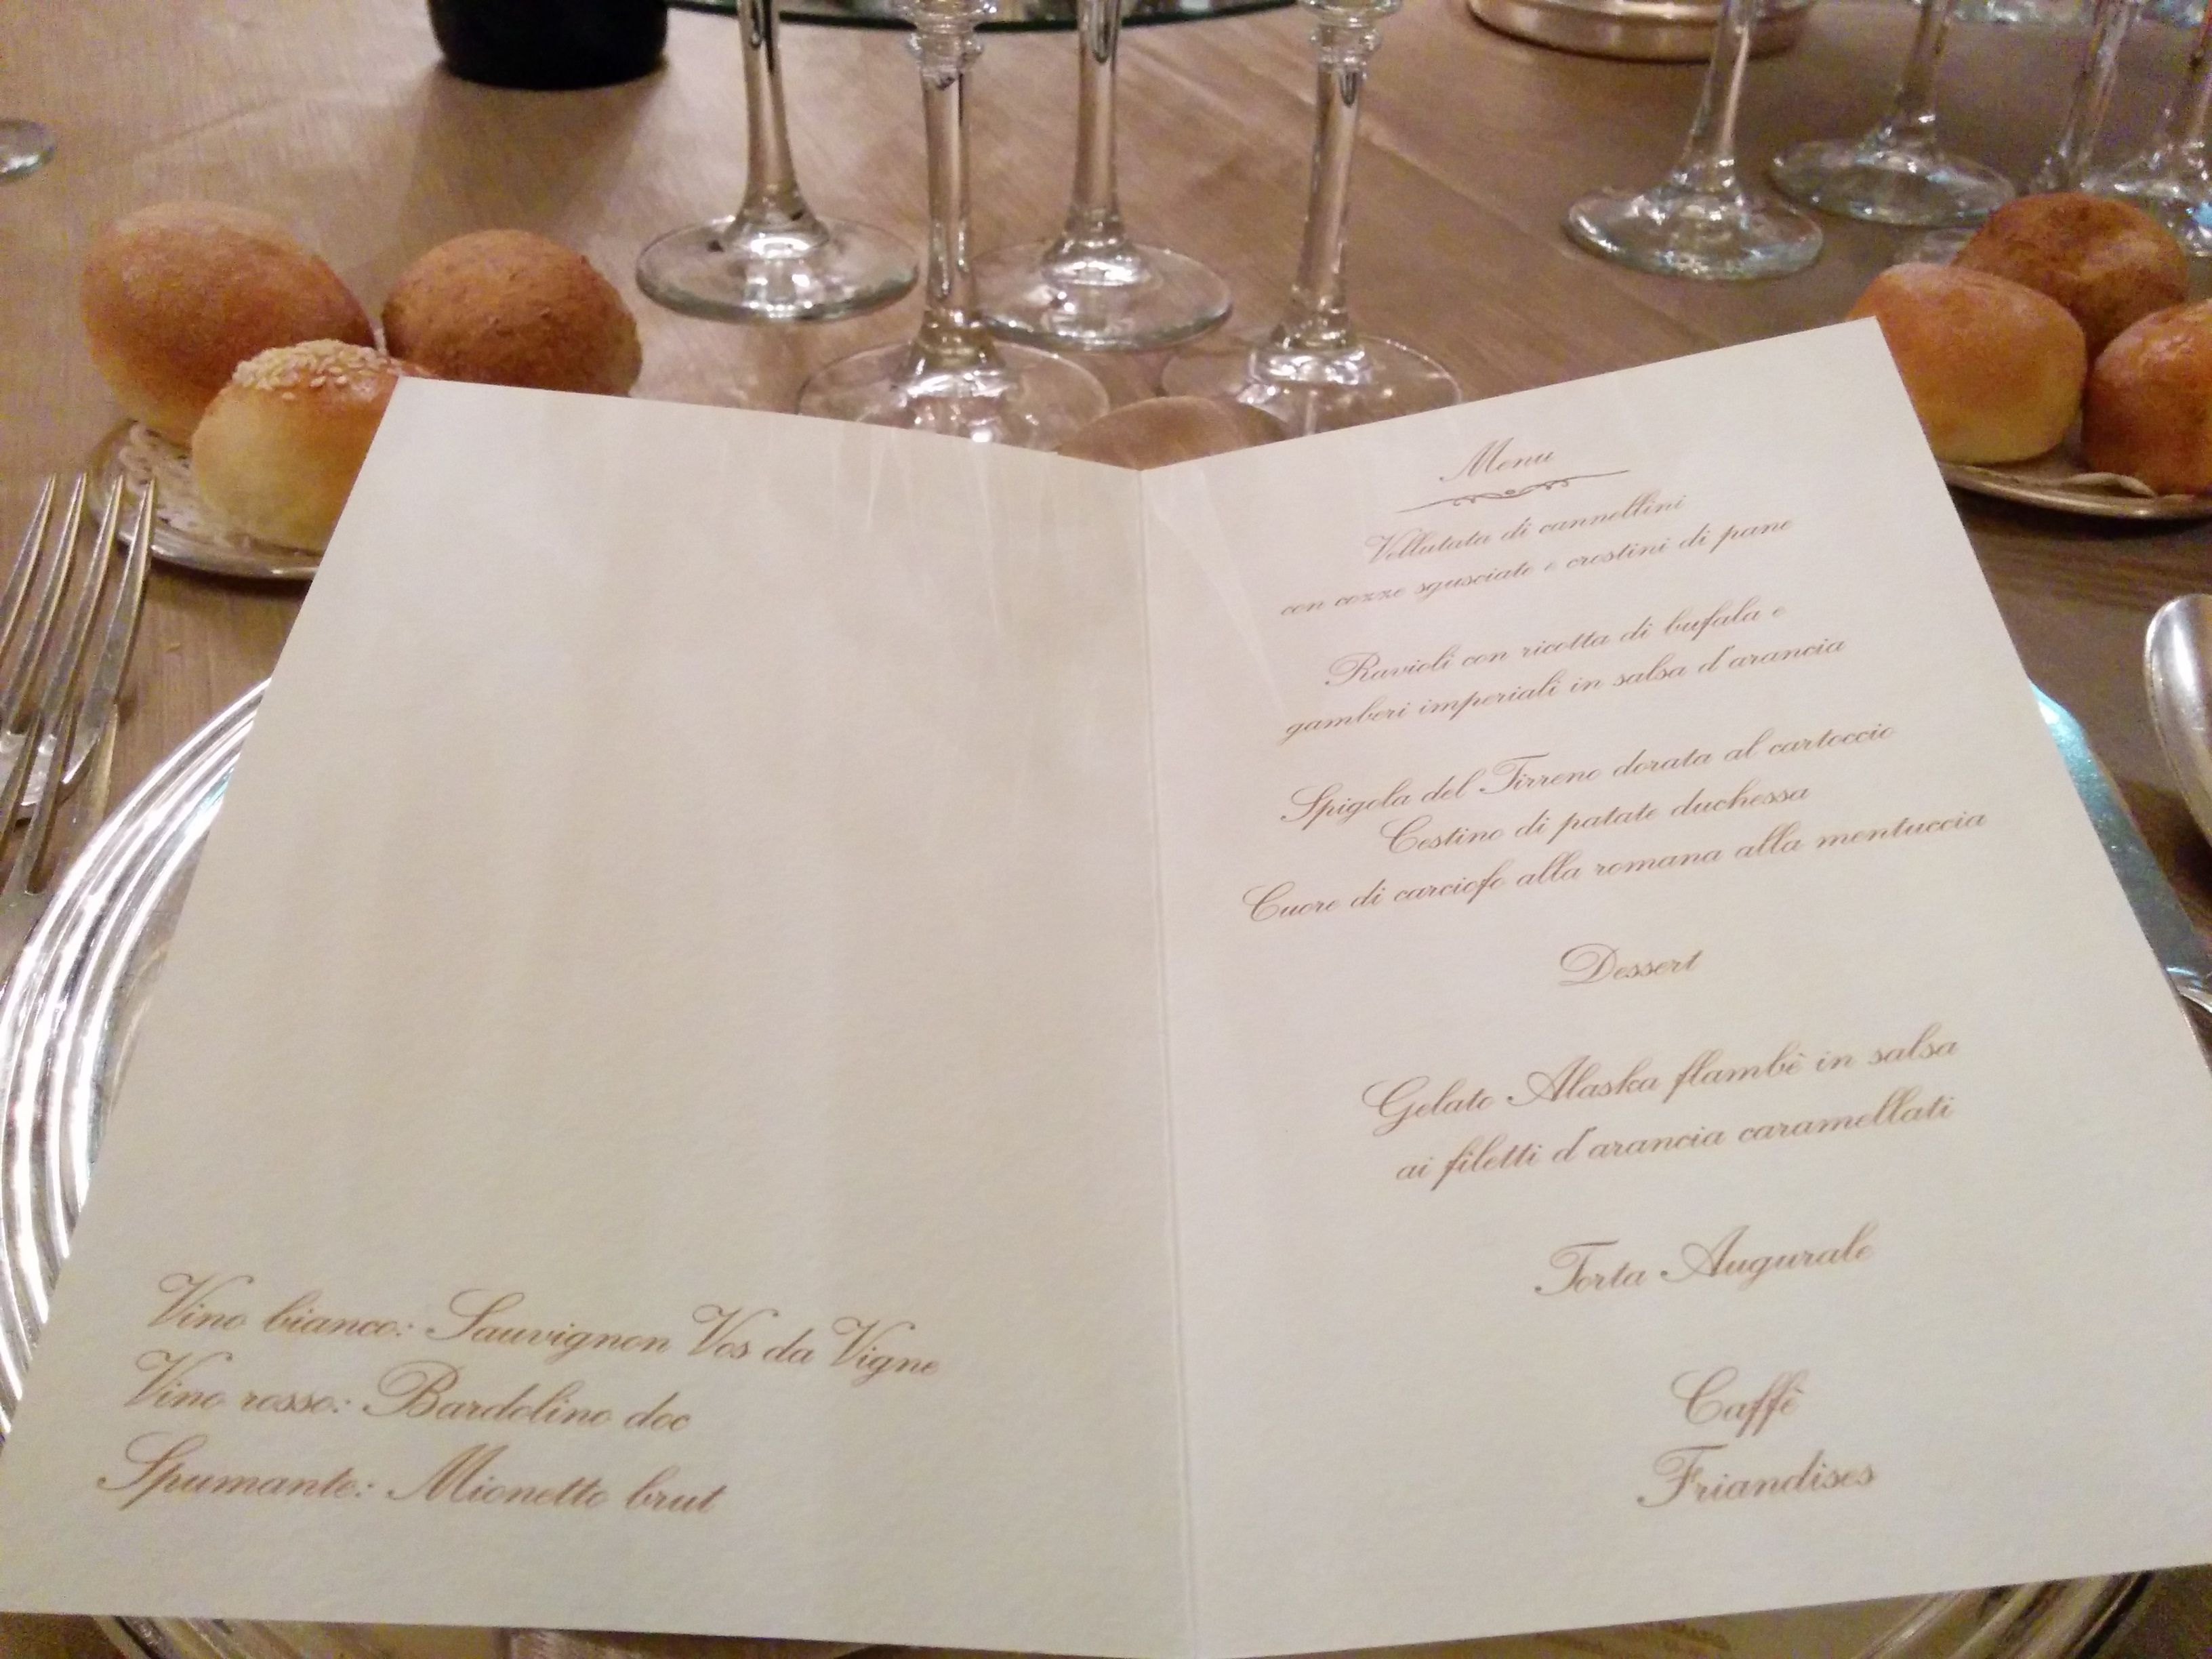 Vino bianco: Sauvignon Vos da Vigne
Vino rosso: Bardolino doc
Spumante: Mionetto brut
Menu
Vellutata di cannellini
con cozze sgusciate e crostini di pane
Ravioli con ricotta di bufala e
gamberi imperiali in salsa d'arancia
Spigola del Tirreno dorata al cartoccio
Cestino di patate duchessa
Cuore di carciofo alla romana alla mentuccia
Dessert
Gelato Alaska flambè in salsa
ai filetti d'arancia caramellati
Torta Augurale
Caffè
Friandises